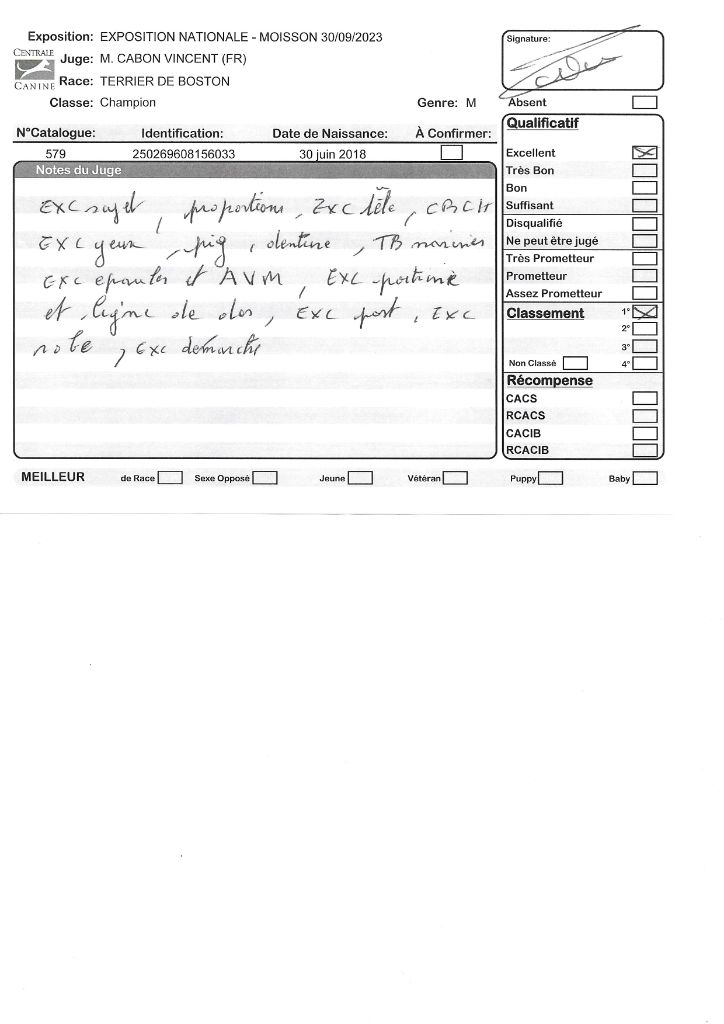 Exposition: EXPOSITION NATIONALE - MOISSON 30/09/2023
CENTRALE CANINE
Juge: M. CABON VINCENT (FR)
Race: TERRIER DE BOSTON
Classe: Champion Genre: M
N°Catalogue: Identification: Date de Naissance: À Confirmer:
579 250269608156033 30 juin 2018
Notes du Juge
EXC sujet, proportions, EXC tête,
EXC yeux, pig, denture, TB narines
EXC epaules et AVM, EXC poitrine
et ligne de dos, EXC port, EXC
robe, EXC démarche
Signature:
Absent
Qualificatif
Excellent
Très Bon
Bon
Suffisant
Disqualifié
Ne peut être jugé
Très Prometteur
Prometteur
Assez Prometteur
Classement 1°
2°
3°
Non Classé 4°
Récompense
CACS
RCACS
CACIB
RCACIB
MEILLEUR de Race Sexe Opposé Jeune Vétéran Puppy Baby